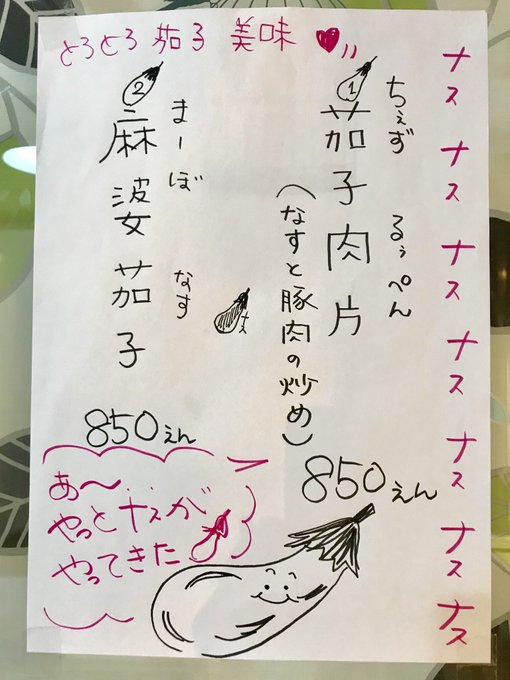 とろとろ 茄子 美味
ナス ナス ナス ナス ナス ナス ナス
① 茄子肉片
ちぇず るぅぺん
(なすと豚肉の炒め)
850えん
② 麻婆茄子
まーぼ なす
ナス
850えん
あ〜…
やっとナスが
やってきた